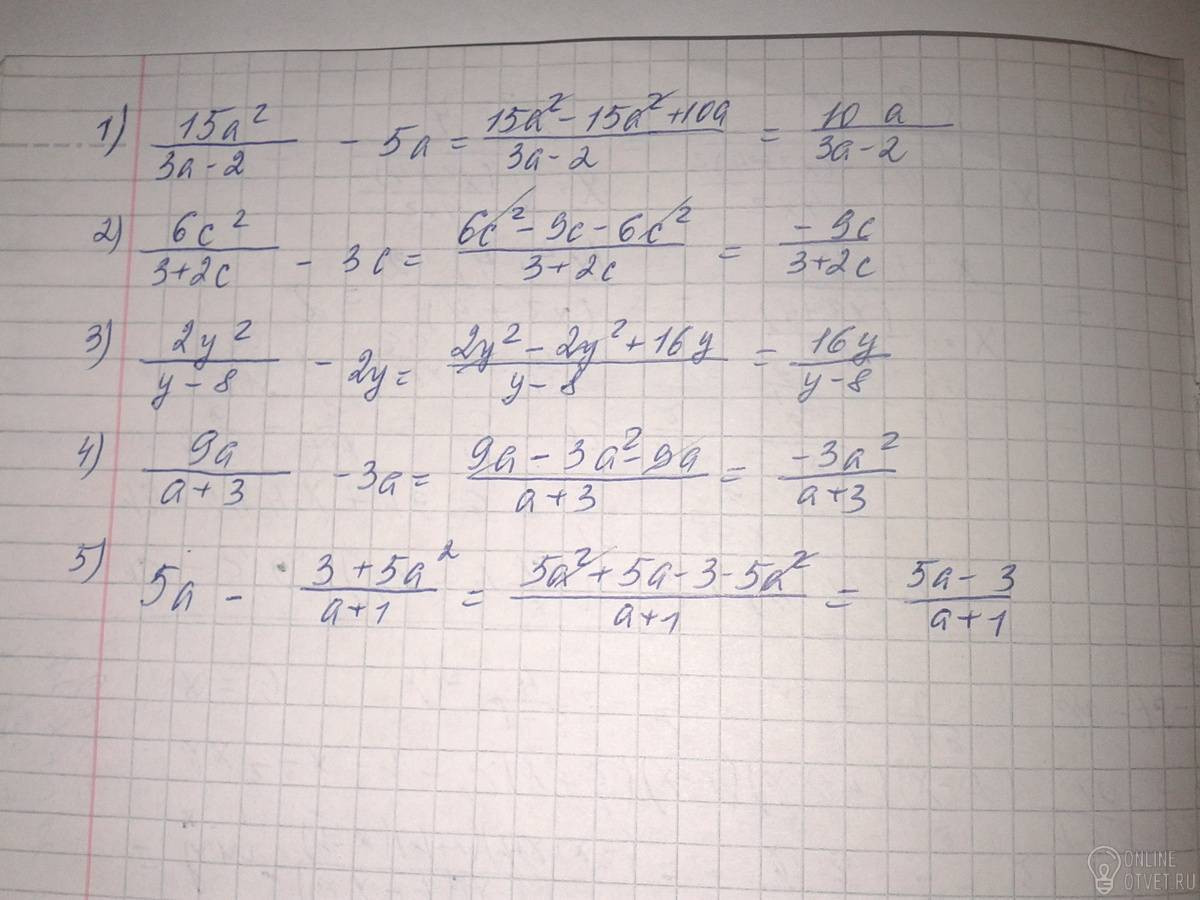 1) 15a²/(3a-2) - 5a = (15a² - 15a² + 10a)/(3a-2) = 10 a/(3a-2)
2) 6c²/(3+2c) - 3c = (6c² - 9c - 6c²)/(3+2c) = -9c/(3+2c)
3) 2y²/(y-8) - 2y = (2y² - 2y² + 16y)/(y-8) = 16y/(y-8)
4) 9a/(a+3) - 3a = (9a - 3a² - 9a)/(a+3) = -3a²/(a+3)
5) 5a - (3+5a²)/(a+1) = (5a² + 5a - 3 - 5a²)/(a+1) = (5a-3)/(a+1)
ONLINE
OTVET.RU